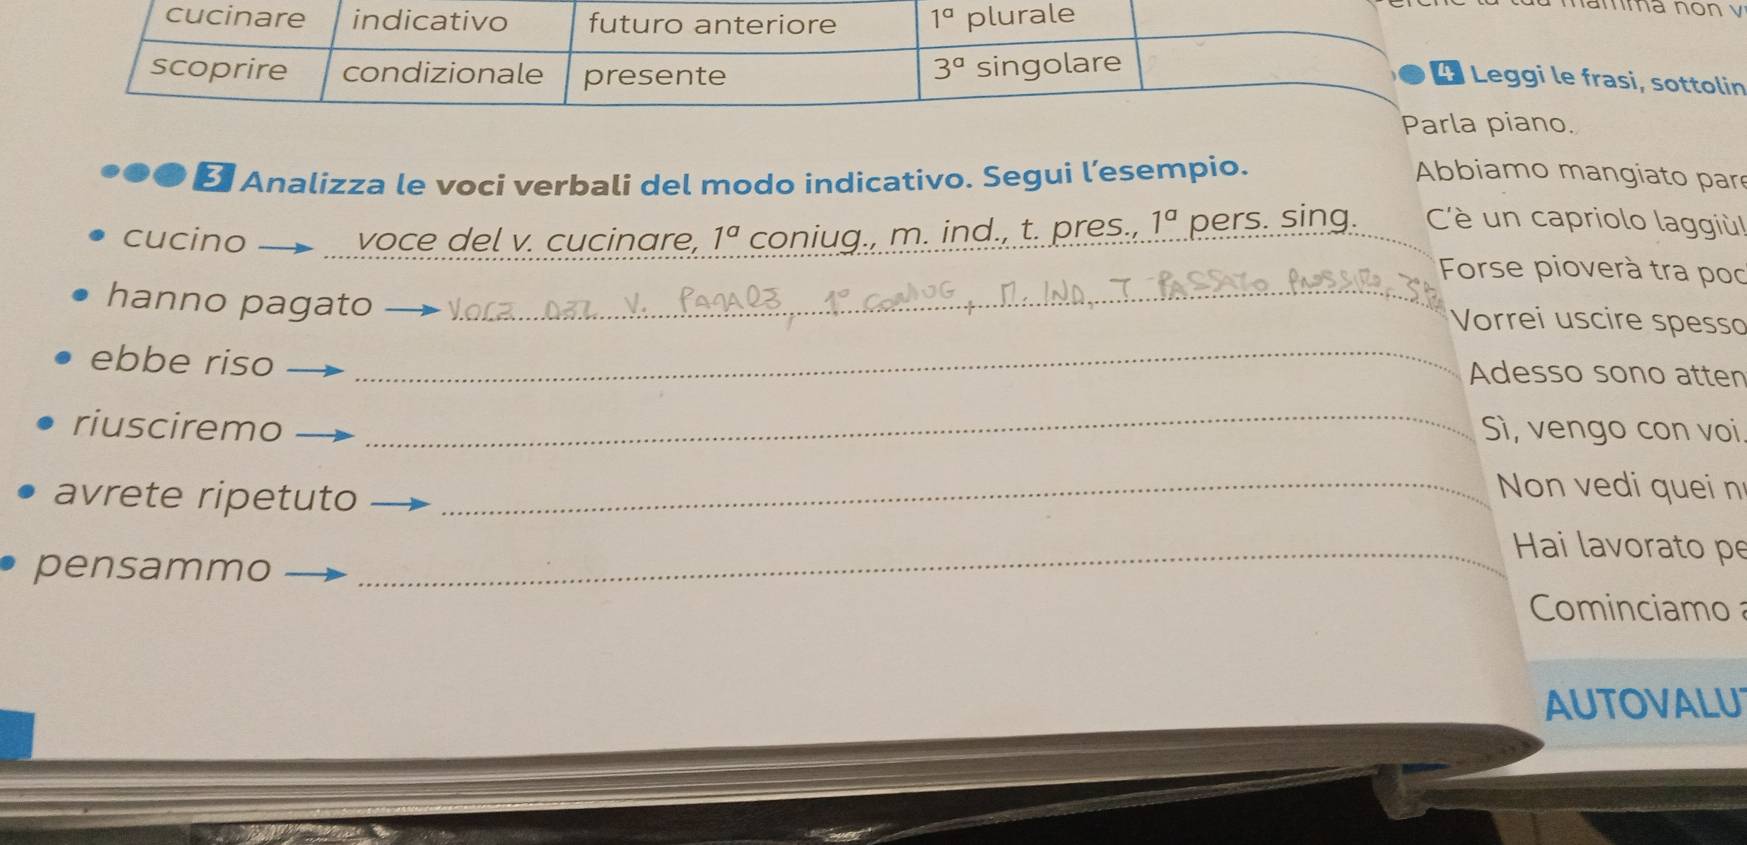 cucinare indicativo futuro anteriore 1ª plurale
scoprire condizionale presente 3ª singolare
3 Analizza le voci verbali del modo indicativo. Segui l'esempio.
cucino → voce del v. cucinare, 1ª coniug., m. ind., t. pres., 1ª pers. sing.
hanno pagato → VOCE DEL V. PAGARE, 1° CONIUG, M. IND, T PASSATO PROSSIMO,
ebbe riso →
riusciremo →
avrete ripetuto →
pensammo →
mamma non
4 Leggi le frasi, sottolin
Parla piano.
Abbiamo mangiato par
C'è un capriolo laggiù!
Forse pioverà tra poc
Vorrei uscire spesso
Adesso sono atten
Sì, vengo con voi.
Non vedi quei n
Hai lavorato pe
Cominciamo
AUTOVALUT